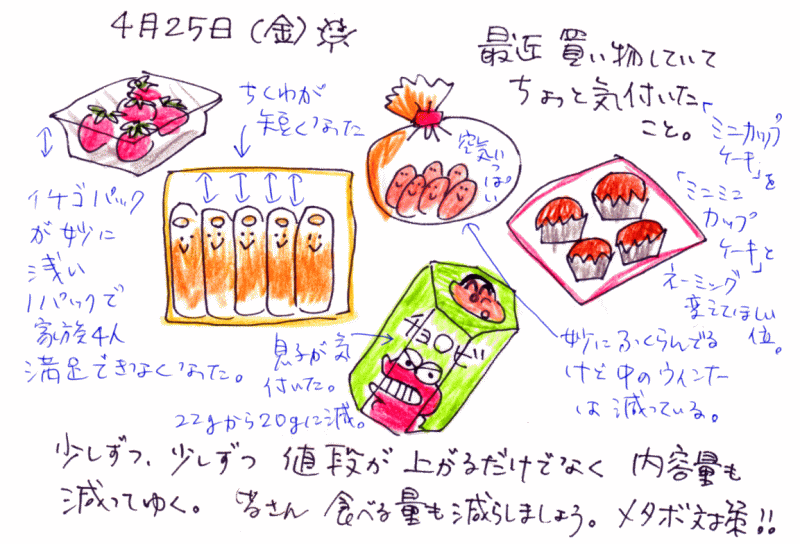 4月25日(金)
最近 買い物していて
ちょっと気付いた
こと。
ちくわが
短くなった
イチゴパック
が妙に
浅い
1パックで
家族4人
満足できなくなった。
空気いっぱい
「ミニカップ
ケーキ」を
「ミニミニ
カップ
ケーキ」と
ネーミング
変えてほしい
位。
チョコビ
息子が気
付いた。
22gから20gに減。
妙にふくらんでる
けど中のウィンナー
は減っている。
少しずつ、少しずつ 値段が上がるだけでなく 内容量も
減ってゆく。 皆さん 食べる量も減らしましょう。メタボ対策!!